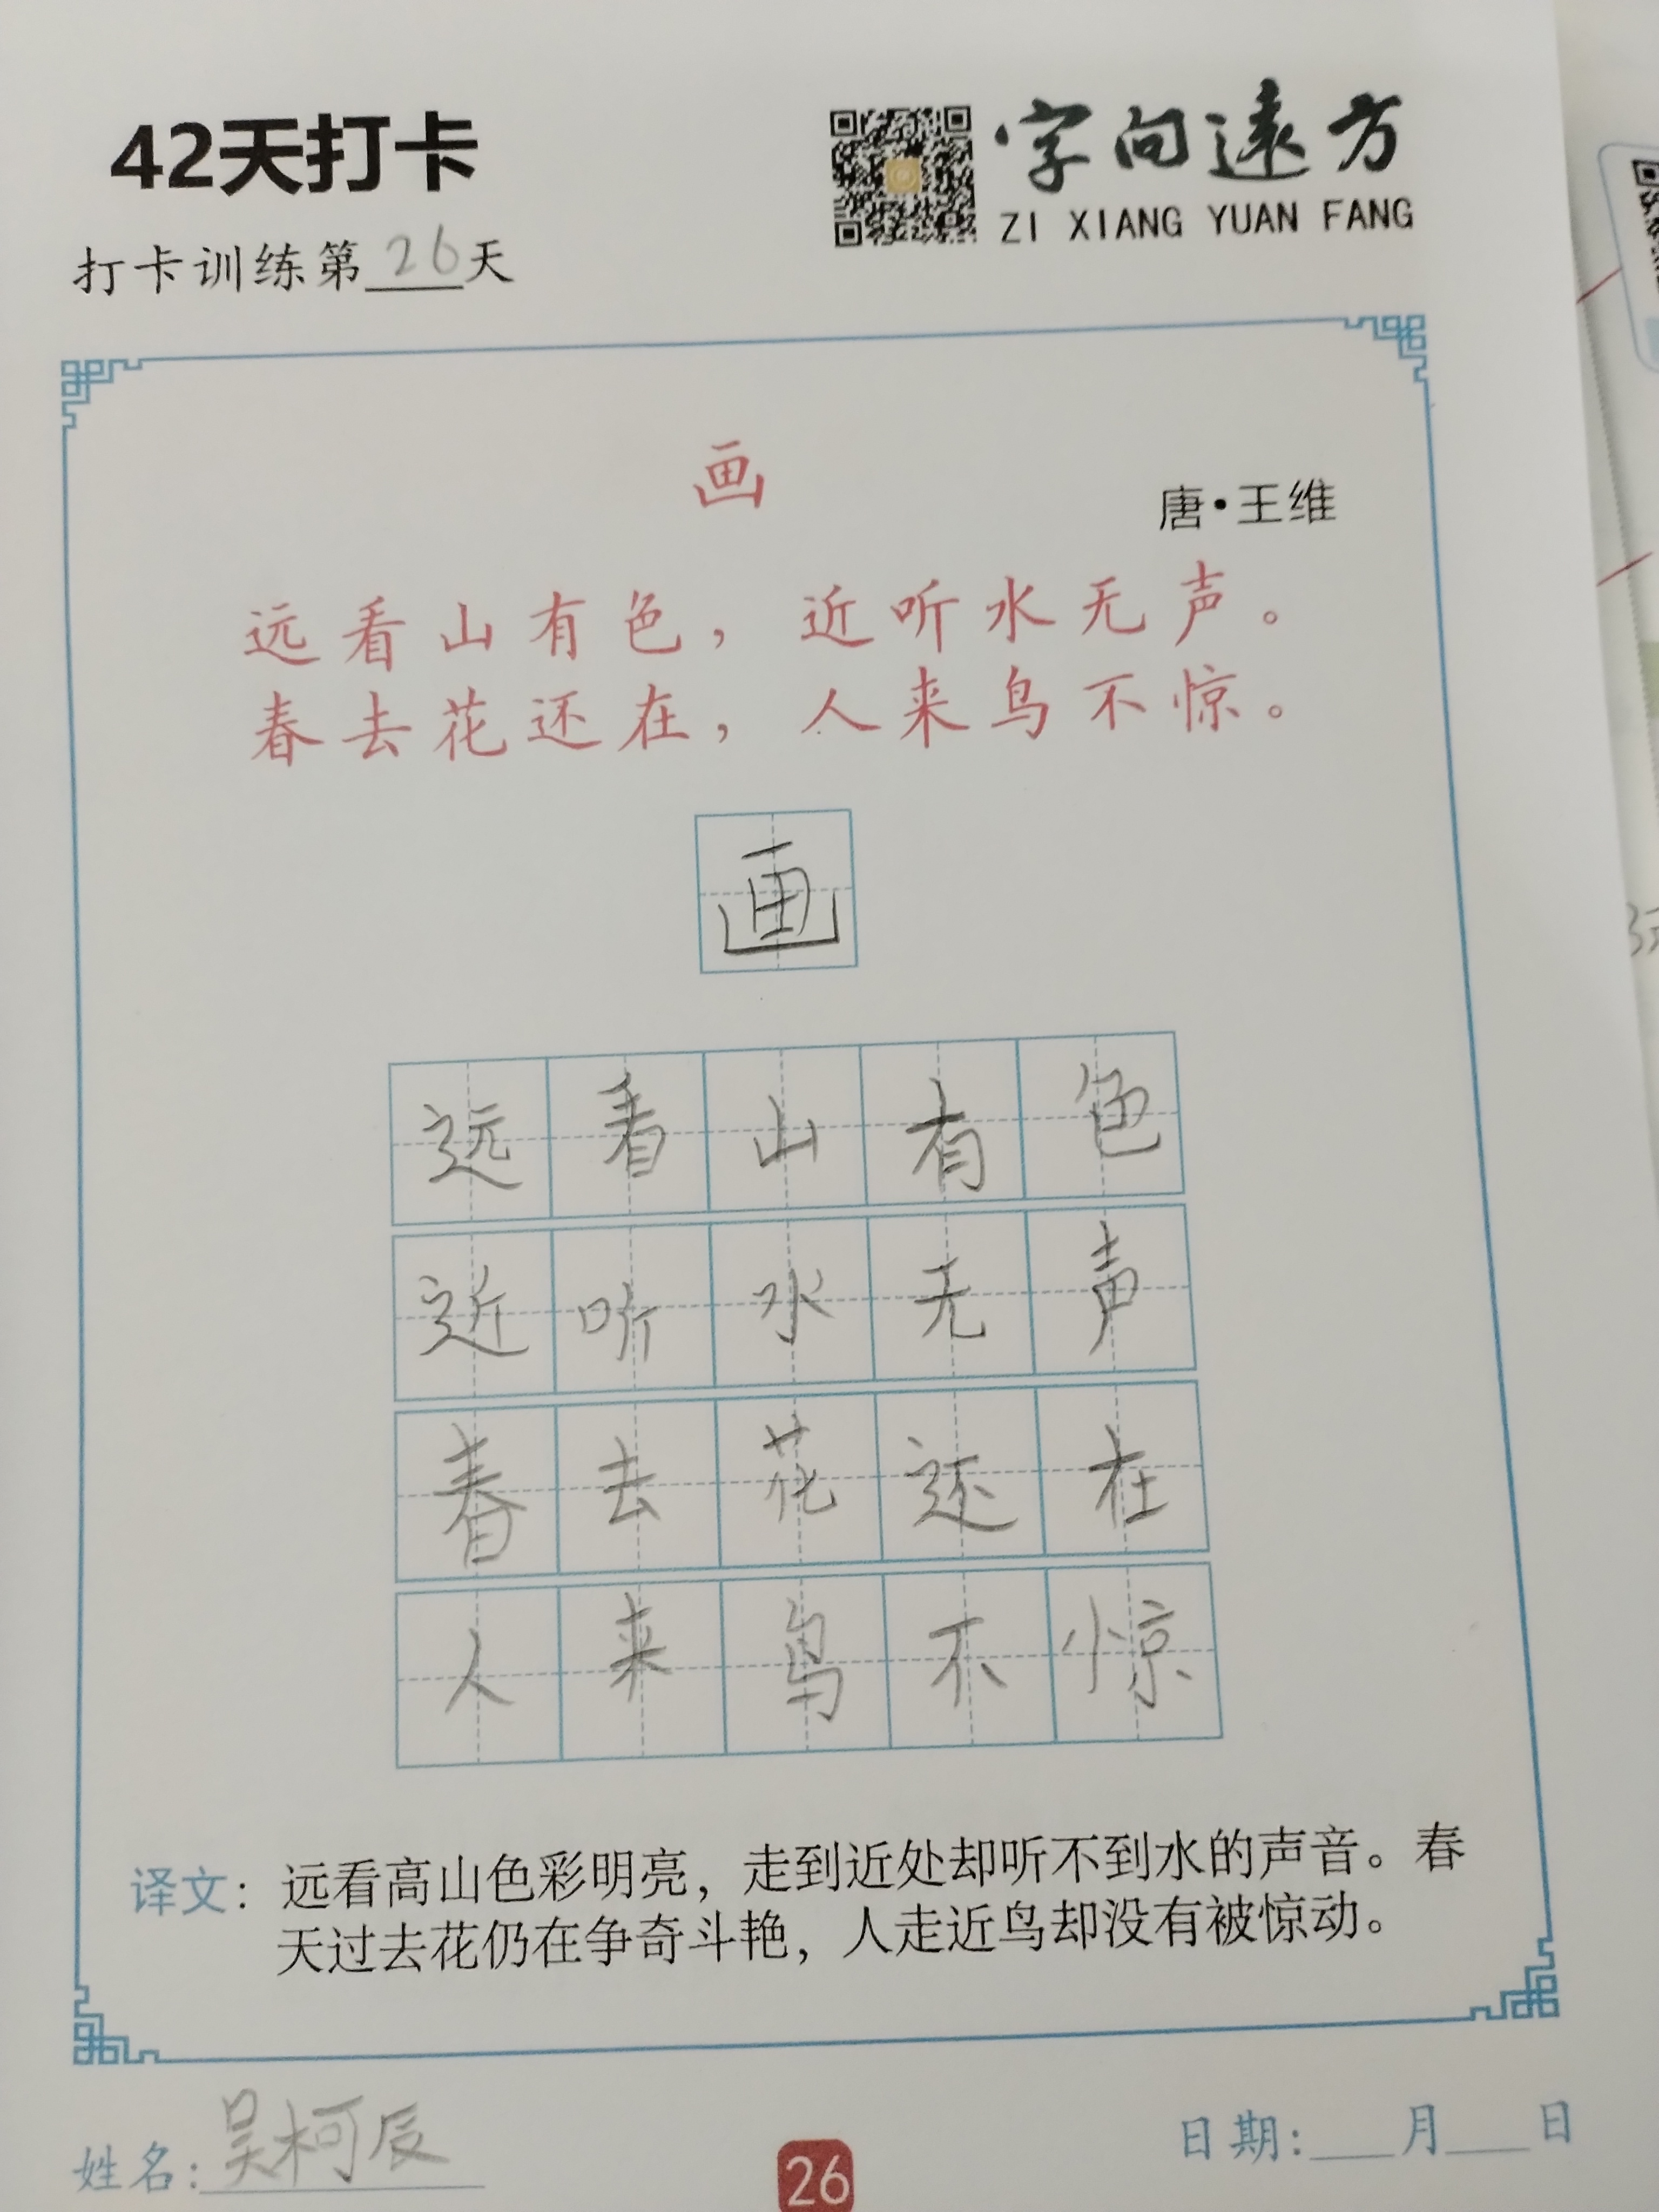 42天打卡
字向遠方
ZI XIANG YUAN FANG
打卡训练第26天
画
唐·王维
远看山有色，近听水无声。
春去花还在，人来鸟不惊。
画
远看山有色
近听水无声
春去花还在
人来鸟不惊
译文：远看高山色彩明亮，走到近处却听不到水的声音。春
天过去花仍在争奇斗艳，人走近鸟却没有被惊动。
姓名：吴柯辰
26
日期：___月___日